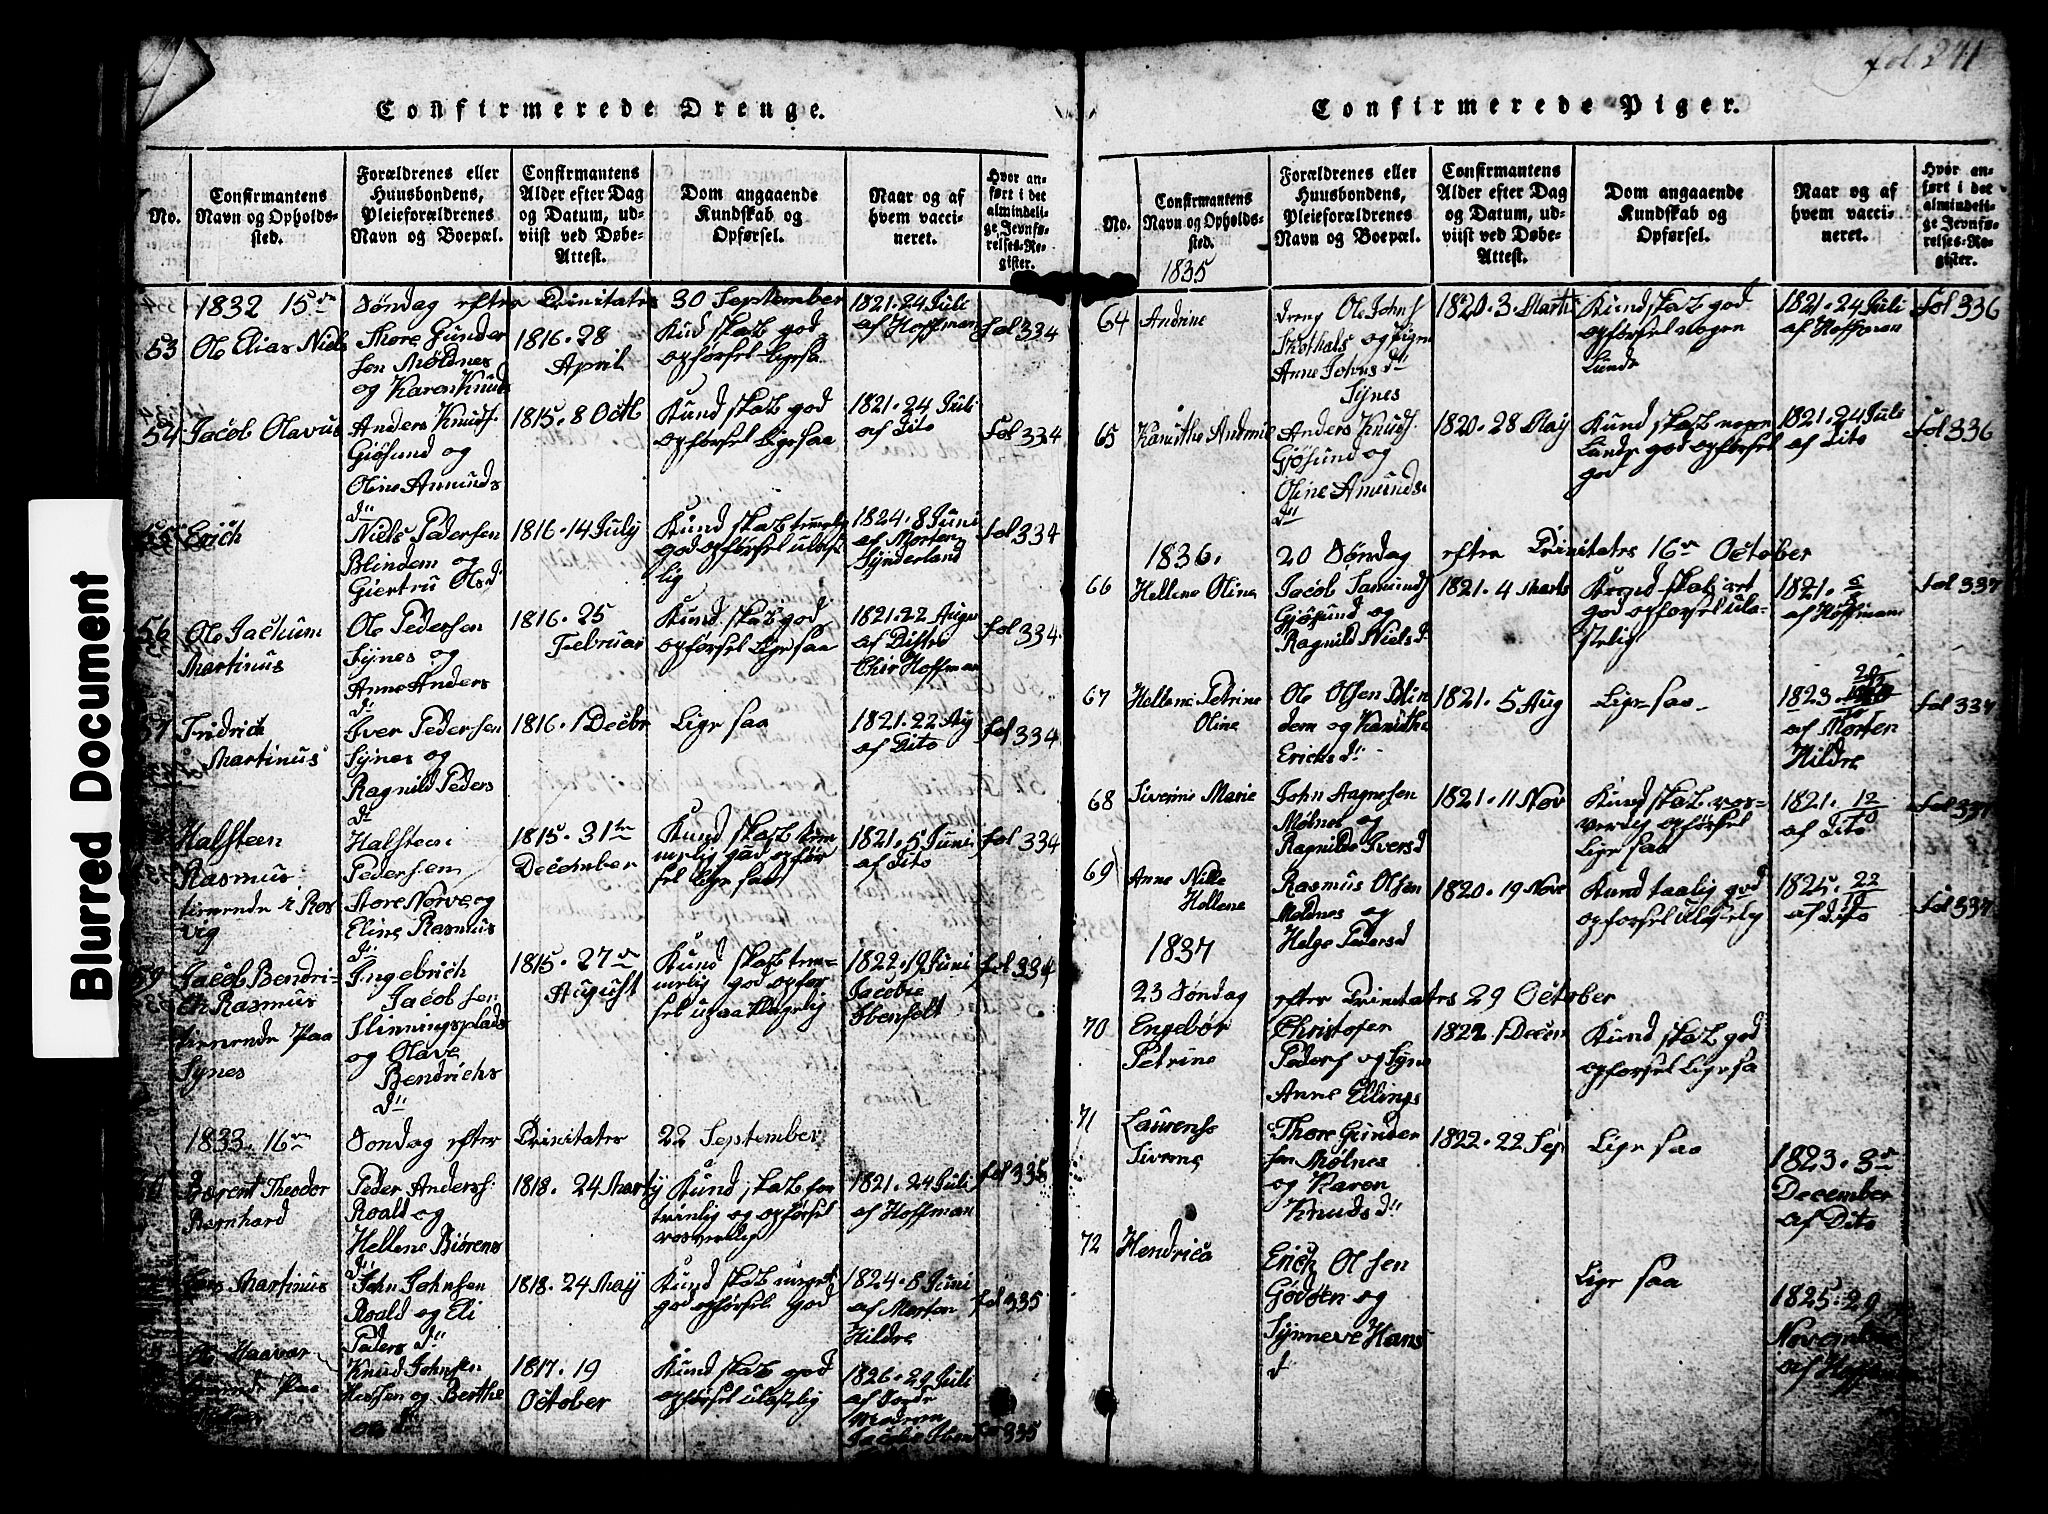 fol 271
Confirmerede Drenge.
No.
Confirmantens Navn og Opholdssted.
Forældrenes eller Huusbondens, Pleieforældrenes Navn og Boepæl.
Confirmantens Alder efter Dag og Datum, udviist ved Døbe-Attest.
Dom angaaende Kundskab og Opførsel.
Naar og af hvem vaccineret.
Hvor anført i det almindelige Jevnførelses-Register.
1832 15de Søndag efter Trinitates 30 September
53 Ole Elias Niels
Thore Gunder
sen Møldnes
og Karen Knuds
1816. 28
April
Kundskab god
opførsel ligesa
1821. 24 Juli
af Hoffman
fol 334
54 Jacob Olavus
Anders Knuds.
Giøsund og
Oline Amunds
dtr
1815. 8 Octb
Kundskab god
opførsel ligesaa
1821. 24 Juli
af Dito
fol 334
55 Erich
Niels Pedersen
Blindem og
Giertru Olsd.
1816. 14 July
Kundskab temelig
god opførsel ulaste
lig
1824. 8 Juni
af Morten
Synderland
fol 334
56 Ole Jachum
Martinus
Ole Pedersen
Synes og
Anne Anders
dr
1816. 25
Februar
Kundskab god
opførsel ligesaa
1821. 22 Augu
af Distr
Chir Hoffman
fol 334
57 Fridrich
Martinus
Iver Pedersen
Synes og
Ragnild Peders
dr
1816. 1 Decbr
Lige saa
1821. 22 Aug
af Dito
fol 334
Halsteen
Rasmus
tienende i Ros
vig
Halsteen
Pedersen
Store Norve og
Eline Rasmus
dr
1815. 31te
December
Kundskab tem
melig god opfør
sel lige saa
1821. 5 Juni
af Dito
fol 334
59 Jacob Bendri-
ch Rasmus
tienende paa
Synes
Ingebrich
Jacobsen
Slinningsplads
og Olave
Bendrichs
dtr
1815. 27de
August
Kundskab tem-
melig god opfør
sel upaaklagelig
1822. 19 Juni
Jacobie
Ibenfelt
fol 334
1833. 16de Søndag efter Trinitates 22 September
Berent Theodor
Bernhard
Peder Anders.
Roald og
Hellene Biørens
dtr
1818. 24 Marty
Kundskab for
trinlig og opførsel
rosverdig
1821. 24 Juli
af Hoffman
fol 335
Martinus
John Johnsen
Roald og Eli
Peders dr
1818. 24 May
Kundskab meget
god opførsel god
1824. 8 Juni
af Morten
Hildre
fol 335
Ole Haavar
Knud Johnsen
og Berthe
1817. 19
October
Kundskab god
opførsel ulastelig
1826. 29 Juli
af Jorde
Modern
Jacobie Iben
335
Confirmerede Piger.
No.
Confirmantens Navn og Opholdssted.
Forældrenes eller Huusbondens, Pleieforældrenes Navn og Boepæl.
Confirmantens Alder efter Dag og Datum, udviist ved Døbe-Attest.
Dom angaaende Kundskab og Opførsel.
Naar og af hvem vaccineret.
Hvor anført i det almindelige Jevnførelses-Register.
1835
64 Andrine
dreng Ole Johns
og Pigen
Anne Johns dtr
Synes
1820. 3. Marti
Kundskab god
opførsel nogen
Lunde
1821. 24 Juli
af Hoffman
fol 336
65 Kanuthe Andrine
Anders Knuds.
Gjøsund og
Oline Amunds
dtr
1820. 28 May
Kundskab nogen
Lande god opførsel
god
1821. 24 Juli
af Dito
fol 336
1836. 20 Søndag efter Trinitates 16de October
66 Hellene Olina
Jacob Samunds
Gjøsund og
Ragnild Nielsd.
1821. 4 Marts
Kundskab
god opførsel ula-
stelig
1821.
af Hoffmann
fol 337
67 Hellene Petrine
Oline
Ole Olsen Blin
dem og Kanuthe
Erichsdr
1821. 5 Aug
Ligesaa
1823.
af Morten
Hildre
fol 337
68 Siverine Marie
John Aagnesen
Mølnes og
Ragnilde Iversd
1821. 11 Nov
Kundskab ros-
verdig opførsel
lige saa
1821. 12/10
af Dito
fol 337
69 Anne Nille
Hellene
Rasmus Olsen
Moldnes og
Helge Pedersd
1820. 19 Nove
Kundtaalig god
opførsel ulastelig
1825. 22
af Dito
fol 337
1837
23 Søndag efter Trinitates 29 October
70 Engebør
Petrine
Christofer
Peders og Syne
Anne Ellings
1822. 1 Decem
Kundskab god
opførsel ligesa
71 Laurense
Siverine
Thore Gunder
sen Mølnes
og Karen
Knuds dtr
1822. 22 Sep
Lige saa
1823. 3de
December
af Dito
72 Hendrica
Erich Olsen
Gødøen og
Synneve Hans
d
Lige saa
1825. 29
November
af Hoffman
Blurred Document